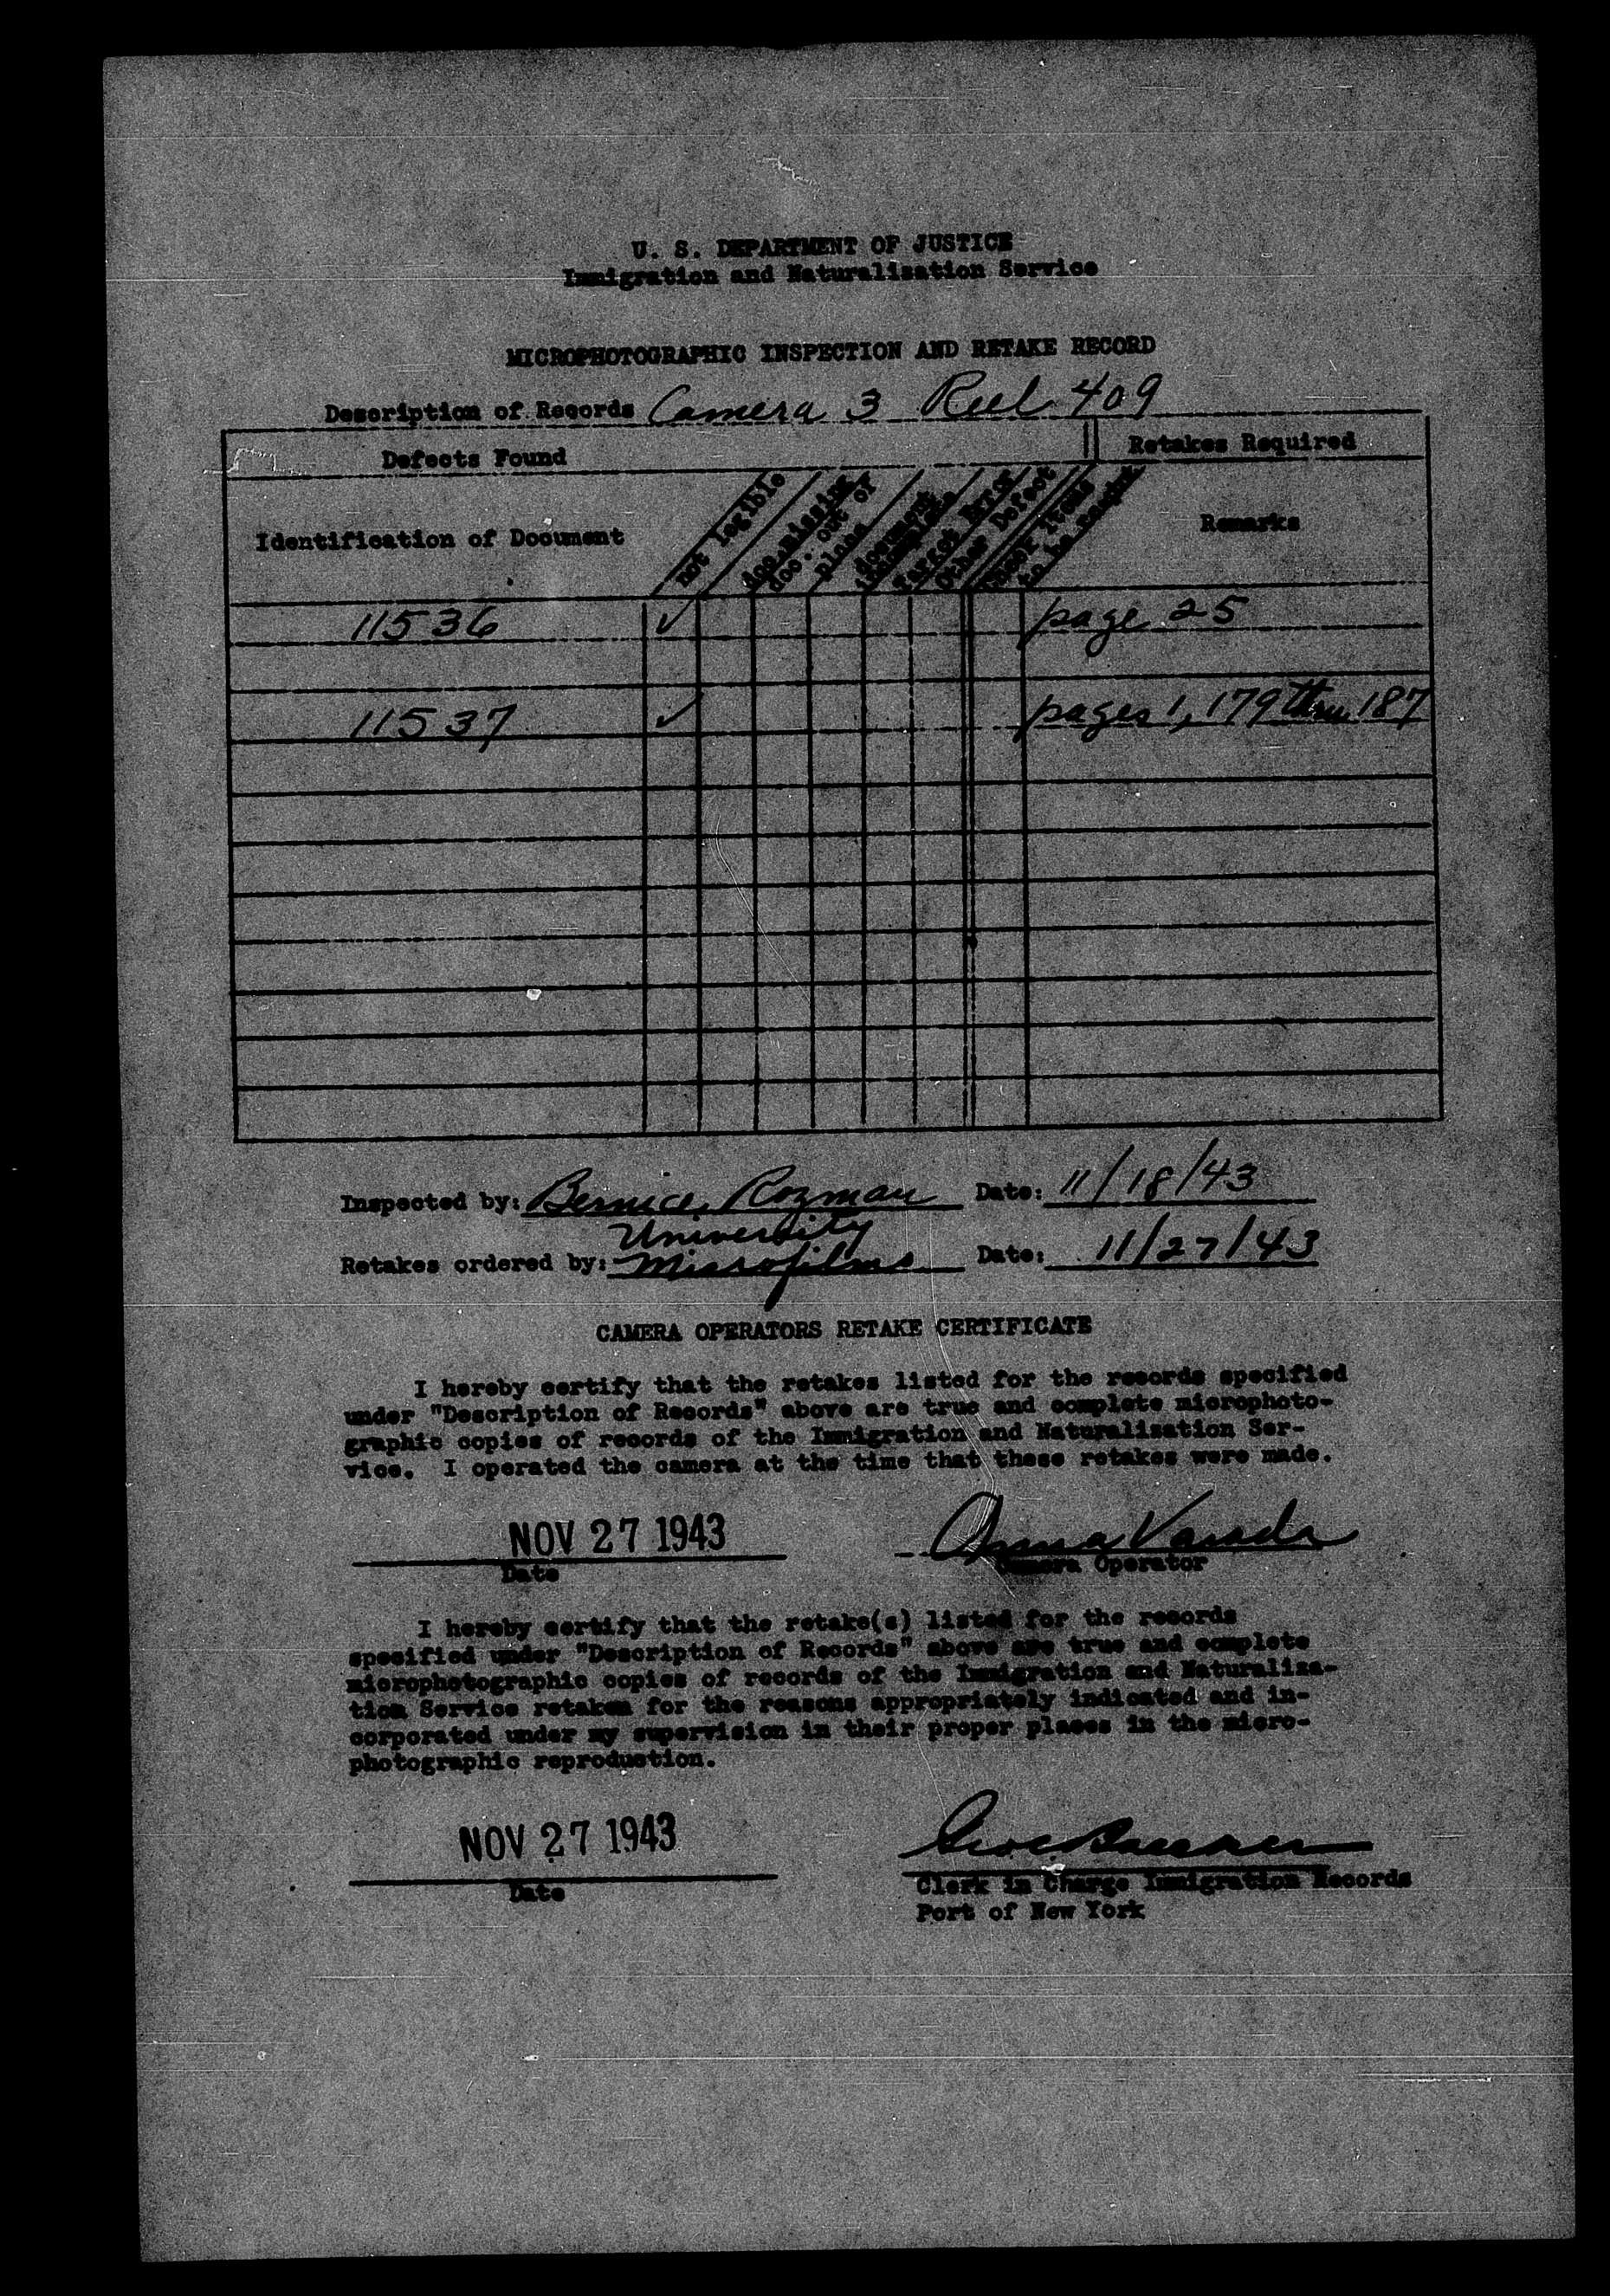 U. S. DEPARTMENT OF JUSTICE
Immigration and Naturalization Service
MICROPHOTOGRAPHIC INSPECTION AND RETAKE RECORD
Description of Records Camera 3 Reel 409
Defects Found
Retakes Required
Identification of Document
not legible
doc. missing
doc. out of place
document incomplete
Other Defect
Check items
to be
Remarks
11536 ✓ page 25
11537 ✓ pages 1, 179 thru 187
Inspected by: Bernice Rozman Date: 11/18/43
University
Retakes ordered by: Microfilms Date: 11/27/43
CAMERA OPERATORS RETAKE CERTIFICATE
I hereby certify that the retakes listed for the records specified
under "Description of Records" above are true and complete microphoto-
graphic copies of records of the Immigration and Naturalization Ser-
vice. I operated the camera at the time that these retakes were made.
NOV 27 1943
Anna
Date
Camera Operator
I hereby certify that the retake(s) listed for the records
specified under "Description of Records" above are true and complete
microphotographic copies of records of the Immigration and Naturaliza-
tion Service retaken for the reasons appropriately indicated and in-
corporated under my supervision in their proper places in the micro-
photographic reproduction.
NOV 27 1943
Date
Clerk in Charge Immigration Records
Port of New York